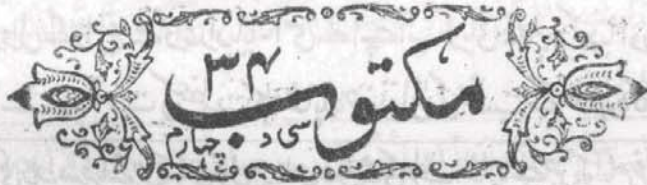 مکتوب ۳۴
سی و چہارم